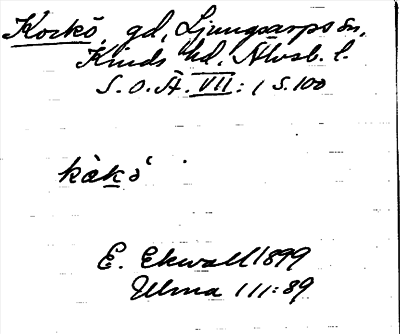 Korkö, gd, Ljungsarps sn,
Kinds hd, Älvsb. l.
S.O.Ä. VII: 1 S. 100
kàkö́
E. Ekwall 1899
Ulma 111:89